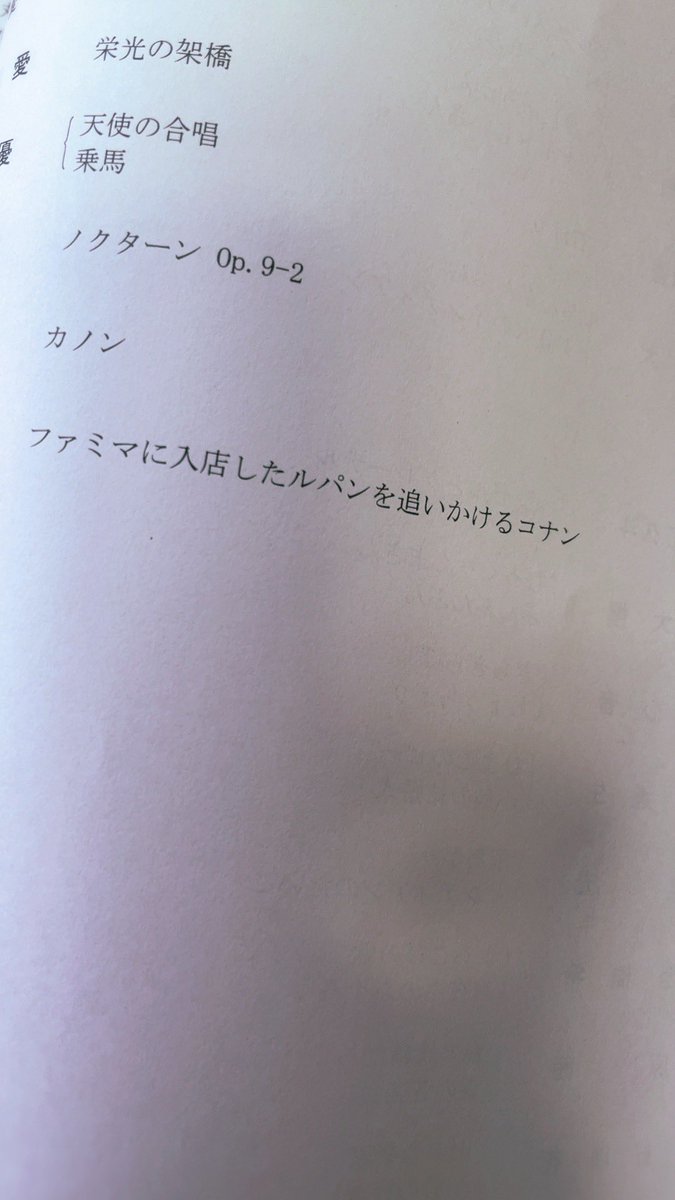 愛 栄光の架橋
優 天使の合唱
乗馬
ノクターン Op.9-2
カノン
ファミマに入店したルパンを追いかけるコナン